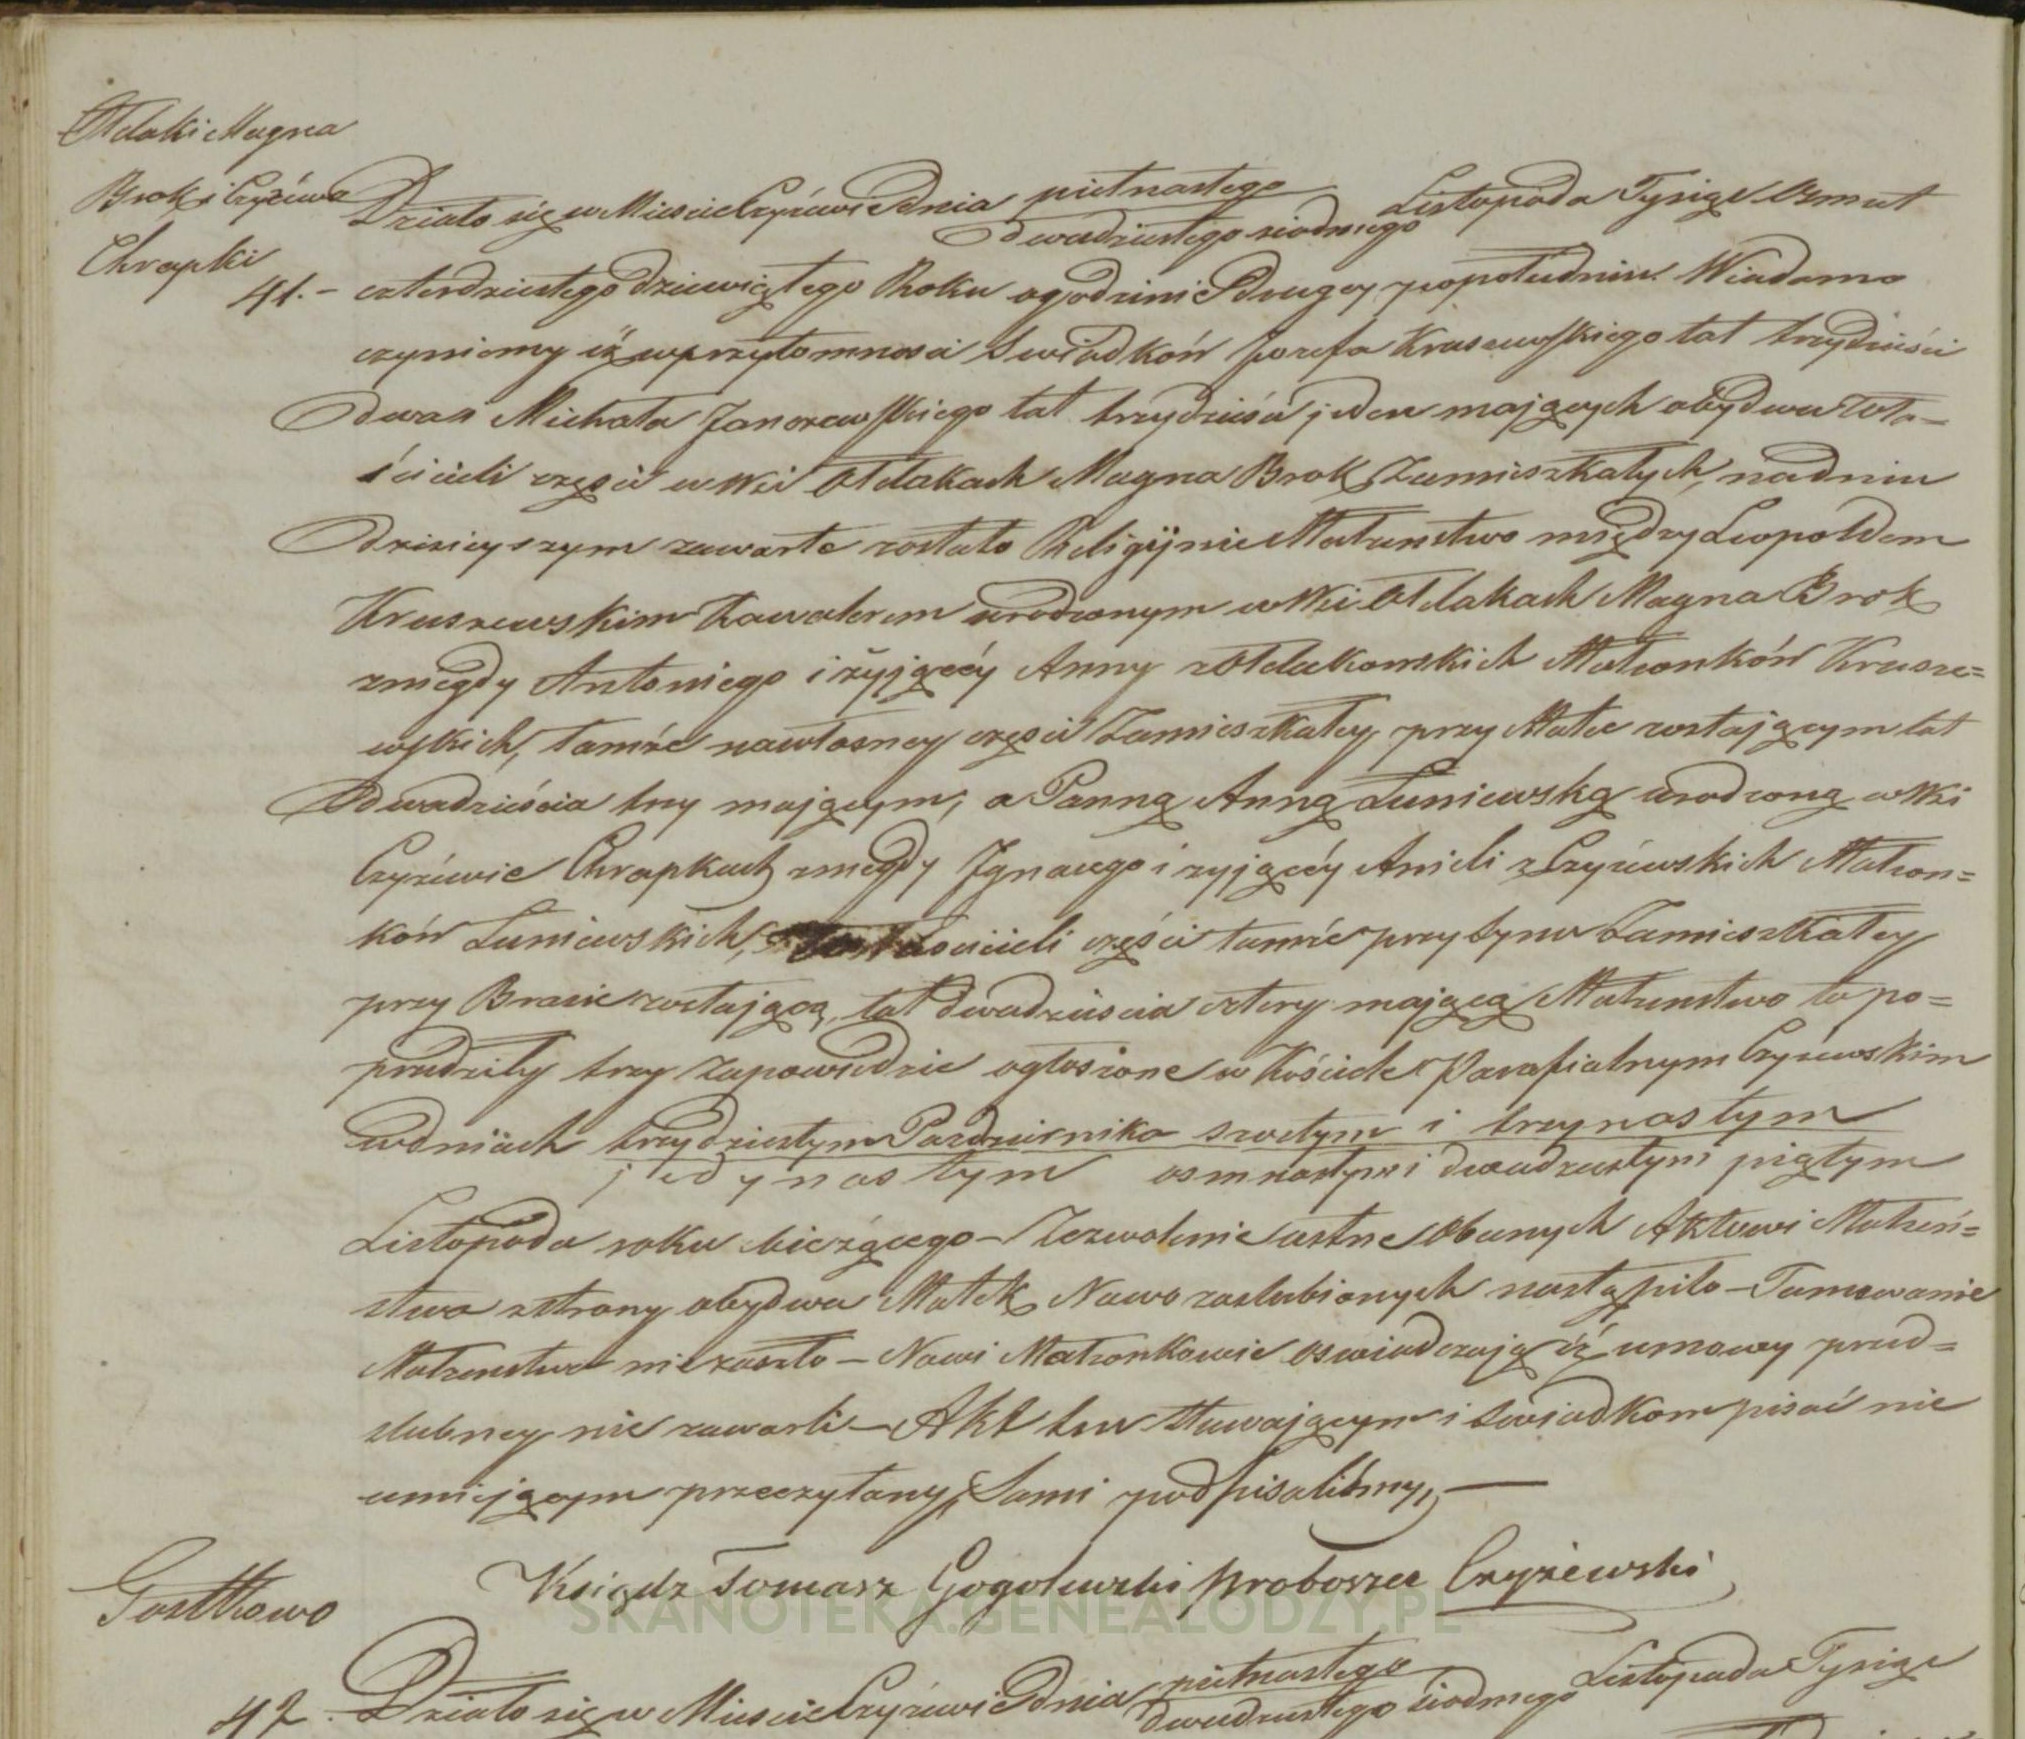 Ołdaki Magna
Brok i Czyżewo
Chrapki
41.-
Działo się w Mieście Czyżewie Dnia piętnastego Listopada Tysiąc Osmset
dwudziestego siodmego
czterdziestego Dziewiątego Roku o godzinie Drugey popołudniu. Wiadomo
czyniemy iż w przytomnosci Swiadków Jozefa Kruszewskiego lat trzydzieści
Dwa i Michała Janczewskiego lat trzydzieści jeden maiących obydwu Wła-
ścicieli części w Wsi Ołdakach Magna Brok Zamieszkałych, na dniu
Dzisieyszym zawarte zostało Religijnie Małżenstwo między Leopoldem
Kruszewskim Kawalerem urodzonym w Wsi Ołdakach Magna Brok
z niegdy Antoniego i żyjącéy Anny z Ołdakowskich Małżonków Krusze=
wskich, tamże na własney części Zamieszkałey przy Matce zostającym lat
Dwadzieścia trzy mającym, a Panną Anną Łuniewską urodzoną w Wsi
Czyżewie Chrapkach z niegdy Ignacego i zyjącéy Anieli z Czyżewskich Małżon=
ków Łuniewskich, Właścicieli części tamże przy Synu Zamieszkałey
przy Bracie zostającą, lat Dwadzieścia cztery mającą Małżenstwo to po=
przedziły trzy Zapowiedzie ogłoszone w Kościele Parafialnym Czyżewskim
w dniach trzydziestym Pazdziernika szostym i trzynastym
jedynastym osmnastym i dwudziestym piątym
Listopada roku bieżącego – Zezwolenie ustne Obecnych Aktowi Małżeń=
stwa z strony obydwu Matek Nowo zaslubionych nastąpiło – Tamowanie
Małżenstwa nie zaszło – Nowi Małżonkowie oswiadczają iż umowy przed=
slubney nie zawarli – Akt ten Stawającym i Swiadkom pisać nie
umiejącym przeczytany, Sami podpisaliśmy, —
Ksiądz Tomasz Gogolewski Proboszcz Czyżewski
SKANOTEKA.GENEALODZY.PL
Gostkowo
42.
Działo się w Mieście Czyżewie Dnia piętnastego Listopada Tysiąc
dwudziestego siodmego